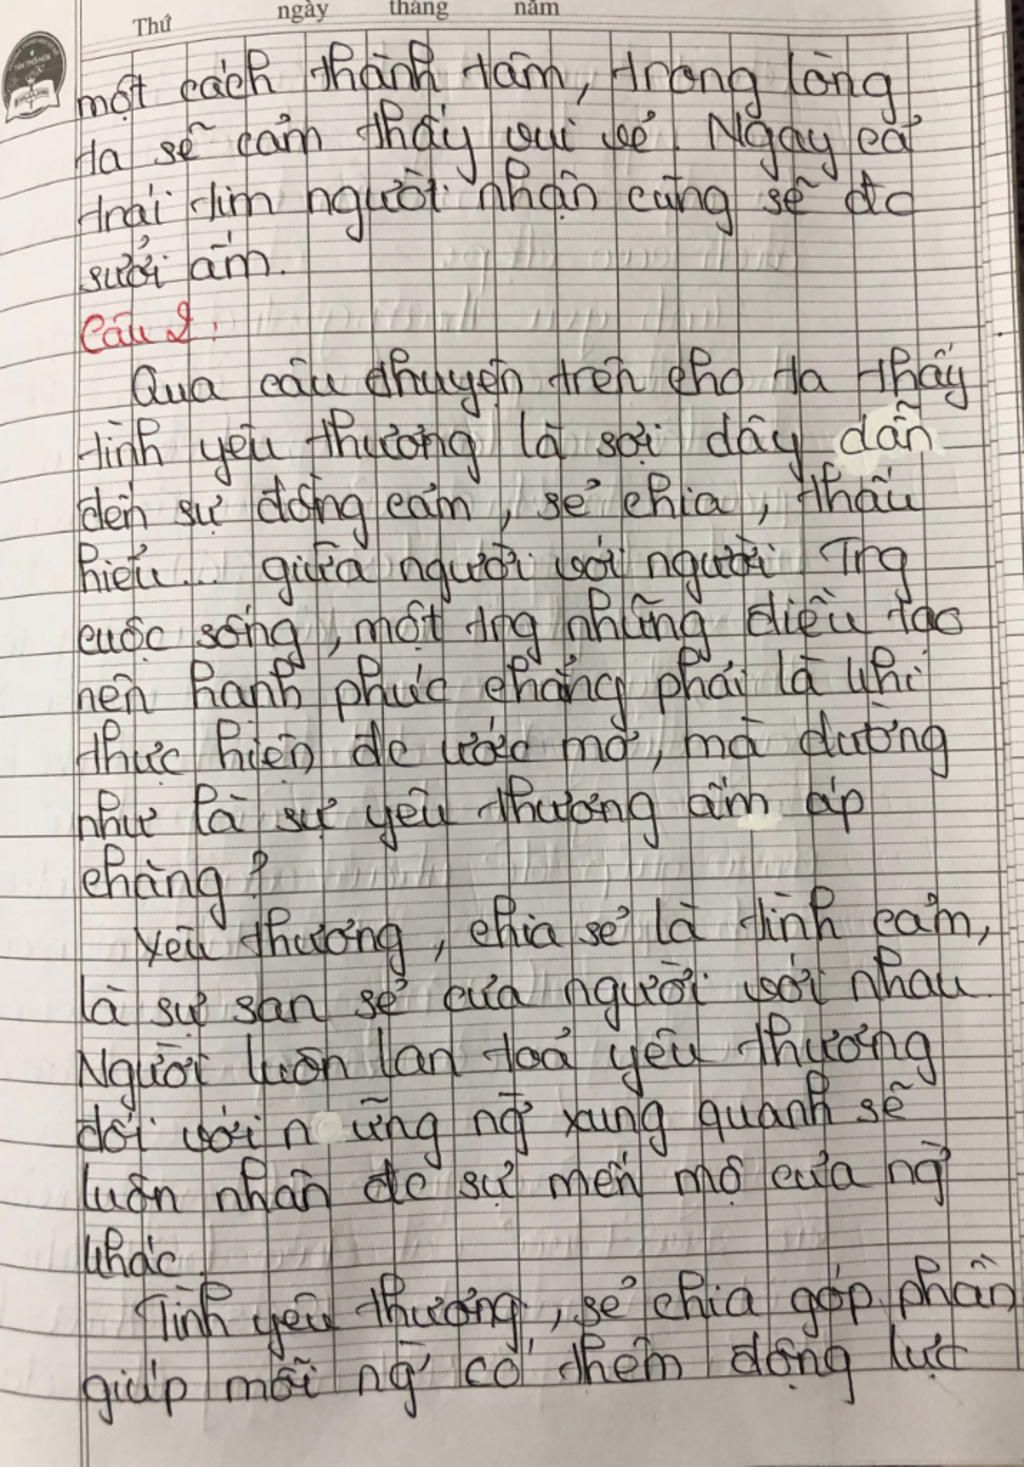 Thứ ngày tháng năm
một cách thành tâm, trong lòng
ta sẽ cảm thấy vui vẻ. Ngay cả
trái tim người nhận cũng sẽ đc
sưởi ấm.
Câu 2:
Qua câu chuyện trên cho ta thấy
tình yêu thương là sợi dây dẫn
đến sự đồng cảm, sẻ chia, thấu
hiểu... giữa người với người. Trg
cuộc sống, một trg những điều tạo
nên hạnh phúc chẳng phải là khi
thực hiện đc ước mơ, mà dường
như là sự yêu thương ấm áp
chăng?
Yêu thương, chia sẻ là tình cảm,
là sự san sẻ của người với nhau.
Người luôn lan toả yêu thương
đối với n ững ng xung quanh sẽ
luôn nhận đc sự mến mộ của ng
khác.
Tình yêu thương, sẻ chia góp phần
giúp mỗi ng có thêm động lực